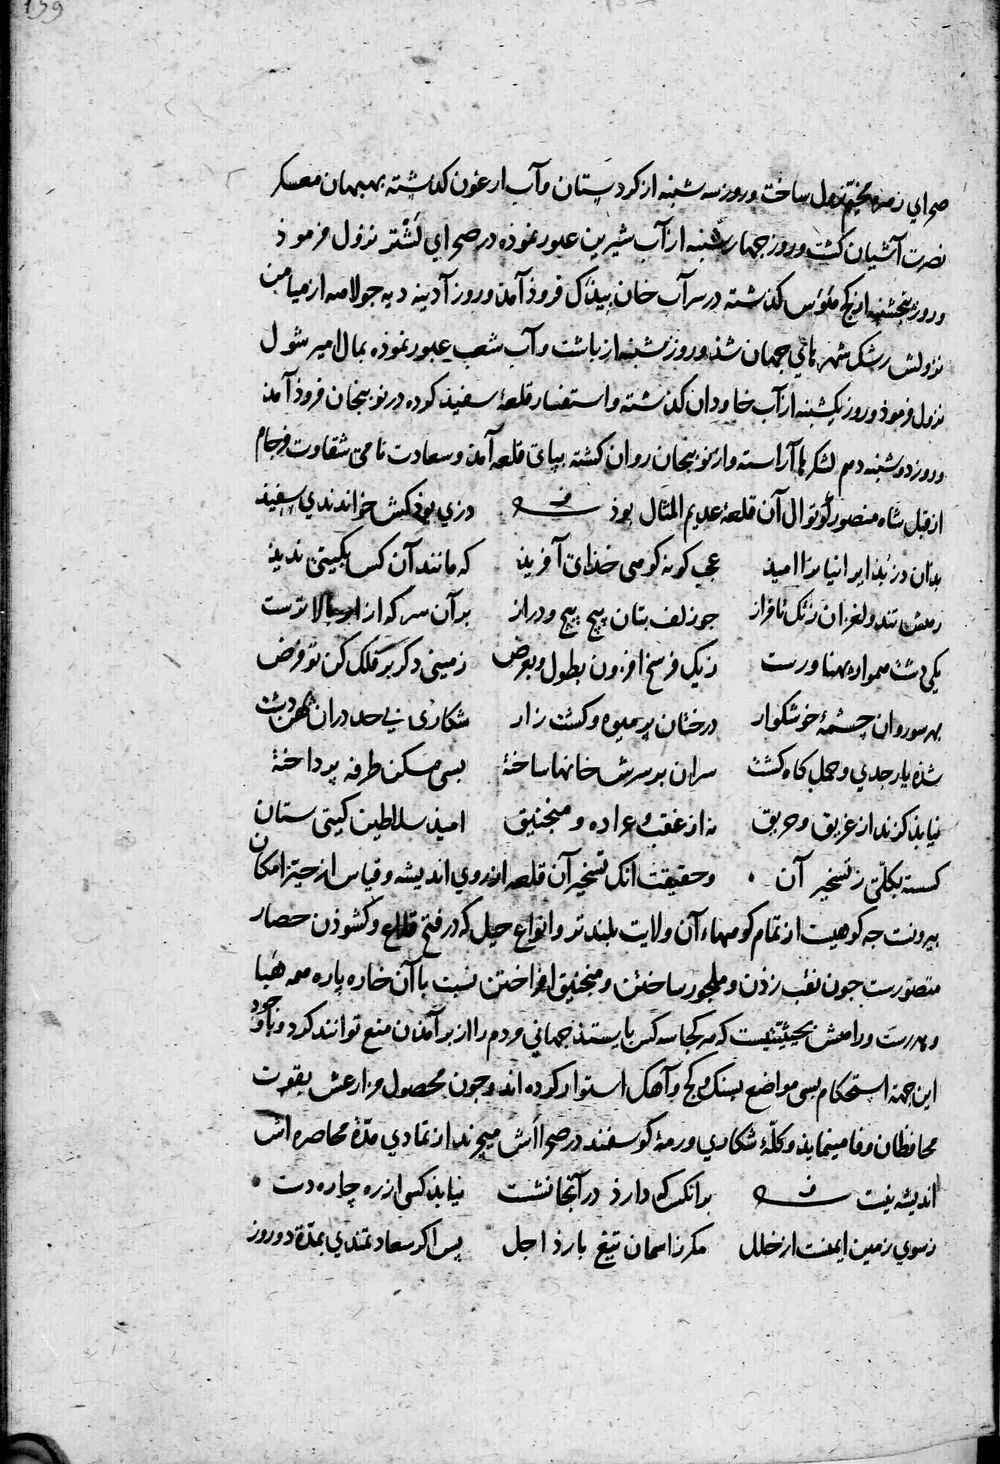 139
صحرای زهره مخیم نزول ساخت و روز سه شنبه از کردستان و آب ارغون کذشته بهبهان معسکر
نصرت آشیان کشت و روز جهارشنبه از آب شیرین عبور نموذه در صحرای لشتر نزول فرموذ
و روز پنجشنبه از کج ملوس کذشته در سر آب خان بیذک فروذ آمذ و روز آدینه دیه جولاهه از میامن
نزولش رشک شهرهای جهان شذ و روز شنبه از باشت و آب شعب عبور نموذه بمال امیر شول
نزول فرموذ و روز یکشنبه از آب خاودان کذشته و استفسار قلعهٔ سفیذ کرده در نوبنجان فروذ آمذ
و روز دوشنبه دهم لشکرها آراسته و از نوبنجان روان کشته بپای قلعه آمذ و سعادت نامی شقاوت فرجام
از قبل شاه منصور کوتوال آن قلعهٔ عدیم المثال بوذ دزی بوذ کش خواندندی سفیذ
بذان دز بذ ایرانیانرا امیذ عجب کونه کوهی خذای آفریذ که مانند آن کس بکیتی ندیذ
رهش تند و لغزان و تنک فراز جو زلف بتان پیچ پیچ و دراز بر آن سر که از ابر بالاترست
یکی دشت هموار پهناورست ز یک فرسخ افزون بطول و بعرض زمینی دکر بر فلک کن تو فرض
بهر سو روان چشمهٔ خوشکوار درختان پر میوه و کشت زار شکاری بی حد دران دشت
شذه یار جدی و حمل کاه کشت سران بر سرش خانها ساخته بسی مسکن طرفه پرداخته
نیابذ کزند از غریق و حریق نه از نقب و عراده و منجنیق امیذ سلاطین کیتی ستان
کسسته بکلی ز تسخیر آن وحقیقت آنک تسخیر آن قلعه از روی اندیشه و قیاس از حیز امکان
بیرونست جه کوهیست از تمام کوههاء آن ولایت بلندتر و انواع حیل که در فتح قلاع و کشوذن حصار
متصورست جون نقب زذن و ملجور ساختن و منجنیق افراختن نسبت با آن خاره پاره همه هبا
و هدرست و راهش بحیثیتیست که هر کجا سه کس بایستذ جهانی مردم را از بر آمذن منع توانند کرد و با وجود
این همه استحکام بسی مواضع بسنک و کج و آهک استوار کرده اند و جون محصول مزارعش بقوت
محافظان وفا مینمایذ و کلهٔ شکاری و رمهٔ کوسفند در صحراش میچرند از تمادی مدة محاصره اش
اندیشه نیست بر آنکس که دارذ در آنجا نشست نیابذ کسی از ره چاره دست
ز سوی زمین ایمنست از خلل مکر ز آسمان تیغ بارذ اجل پس اکر سعادتمندی بمدة دو روز